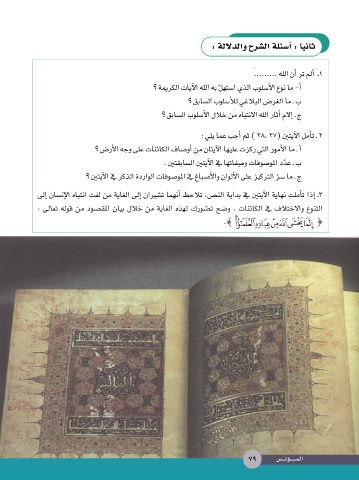 ثانيا : أسئلة الشرح والدلالة :
١. ألم تر أن الله .........
أ- ما نوع الأسلوب الذي استهلّ به الله الآيات الكريمة ؟
ب. ما الغرض البلاغي للأسلوب السابق ؟
ج. إلام أثار الله الانتباه من خلال الأسلوب السابق ؟
٢. تأمل الآيتين (٢٧، ٢٨ ) ثم أجب عما يلي :
أ. ما الأمور التي ركزت عليها الآيتان من أوصاف الكائنات على وجه الأرض ؟
ب. عدّد الموصوفات وصفاتها في الآيتين السابقتين .
ج. ما سرّ التركيز على الألوان والأصباغ في الموصوفات الواردة الذكر في الآيتين ؟
٣. إذا تأملت نهاية الآيتين في بداية النص، تلاحظ أنهما تشيران إلى الغاية من لفت انتباه الإنسان إلى
التنوع والاختلاف في الكائنات . وضح تصّورك لهذه الغاية من خلال بيان المقصود من قوله تعالى :
﴿ إِنَّمَا يَخْشَى اللَّهَ مِنْ عِبَادِهِ الْعُلَمَاءُ ﴾.
المـــؤنــس ٧٩